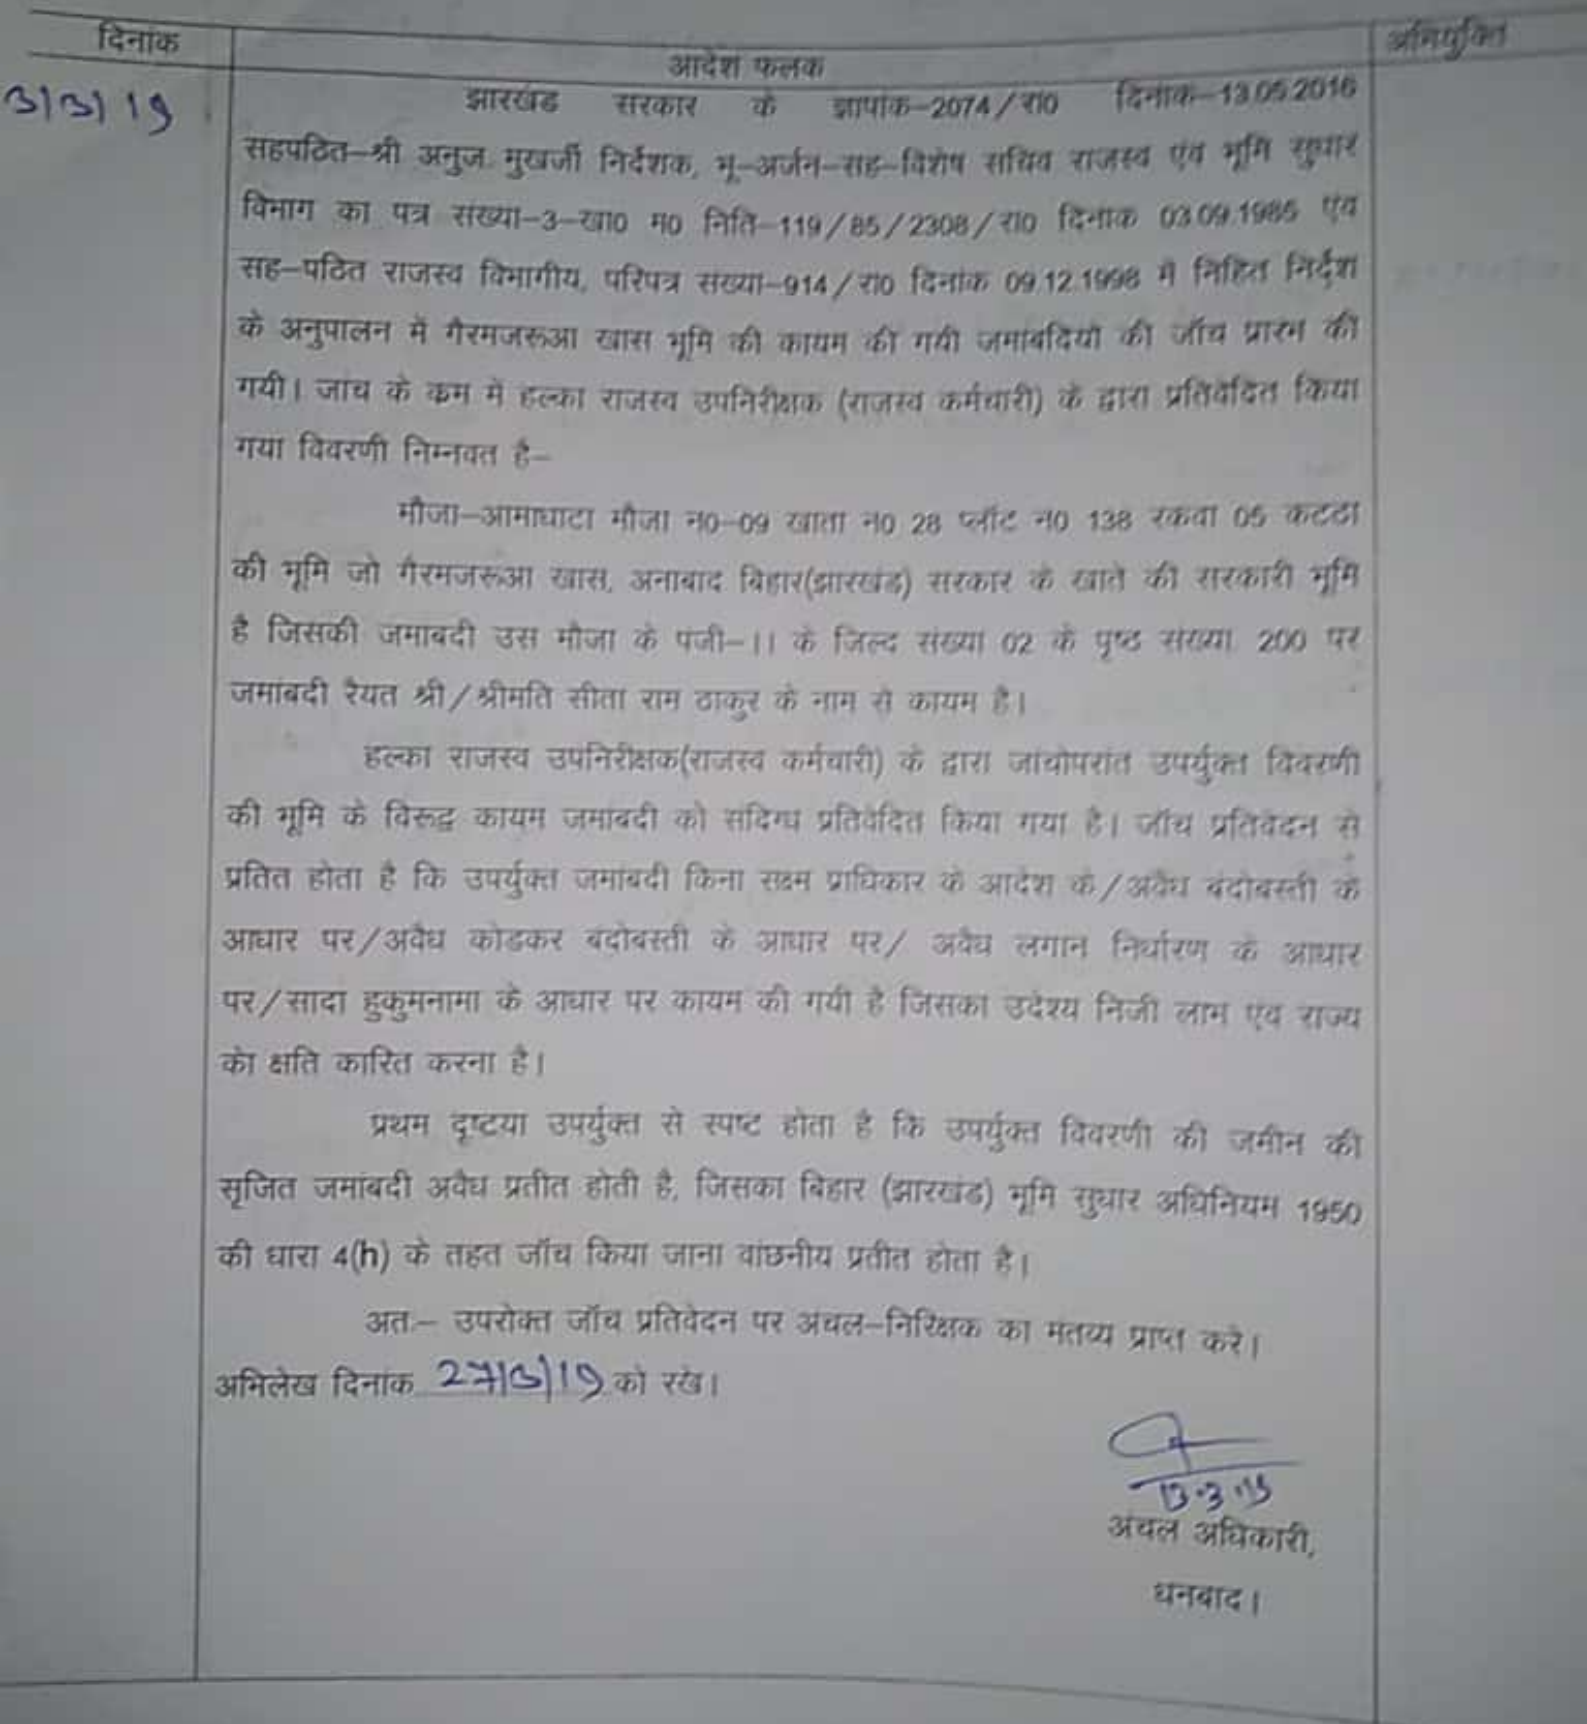 दिनांक
आदेश फलक
अभियुक्ति
3/3/19
झारखंड सरकार के ज्ञापांक-2074/रा0 दिनांक-13.05.2016
सहपठित-श्री अनुज मुखर्जी निर्देशक, भू-अर्जन-सह-विशेष सचिव राजस्व एंव भूमि सुधार
विभाग का पत्र संख्या-3-खा0 म0 निति-119/85/2308/रा0 दिनांक 03.09.1985 एंव
सह-पठित राजस्व विभागीय, परिपत्र संख्या-914/रा0 दिनांक 09.12.1998 में निहित निर्देश
के अनुपालन में गैरमजरूआ खास भूमि की कायम की गयी जमांबदियों की जाँच प्रारंभ की
गयी। जांच के कम में हल्का राजस्व उपनिरीक्षक (राजस्व कर्मचारी) के द्वारा प्रतिवेदित किया
गया विवरणी निम्नवत है-
मौजा-आमाघाटा मौजा न0-09 खाता न0 28 प्लॉट न0 138 रकवा 05 कटठा
की भूमि जो गैरमजरूआ खास, अनाबाद बिहार(झारखंड) सरकार के खाते की सरकारी भूमि
है जिसकी जमांबदी उस मौजा के पंजी-।। के जिल्द संख्या 02 के पृष्ठ संख्या 200 पर
जमांबदी रैयत श्री/श्रीमति सीता राम ठाकुर के नाम से कायम है।
हल्का राजस्व उपनिरीक्षक(राजस्व कर्मचारी) के द्वारा जांचोपरांत उपर्युक्त विवरणी
की भूमि के विरूद्व कायम जमांबदी को संदिग्ध प्रतिवेदित किया गया है। जाँच प्रतिवेदन से
प्रतित होता है कि उपर्युक्त जमांबदी किना सक्षम प्राधिकार के आदेश के/अवैध बंदोबस्ती के
आधार पर/अवैध कोडकर बंदोबस्ती के आधार पर/ अवैध लगान निर्धारण के आधार
पर/सादा हुकुमनामा के आधार पर कायम की गयी है जिसका उदेश्य निजी लाभ एंव राज्य
को क्षति कारित करना है।
प्रथम दृष्टया उपर्युक्त से स्पष्ट होता है कि उपर्युक्त विवरणी की जमीन की
सृजित जमांबदी अवैध प्रतीत होती है, जिसका बिहार (झारखंड) भूमि सुधार अधिनियम 1950
की धारा 4(h) के तहत जाँच किया जाना वांछनीय प्रतीत होता है।
अतः- उपरोक्त जाँच प्रतिवेदन पर अंचल-निरिक्षक का मंतव्य प्राप्त करें।
अभिलेख दिनांक 27/3/19 को रखें।
13.3.19
अंचल अधिकारी,
धनबाद।